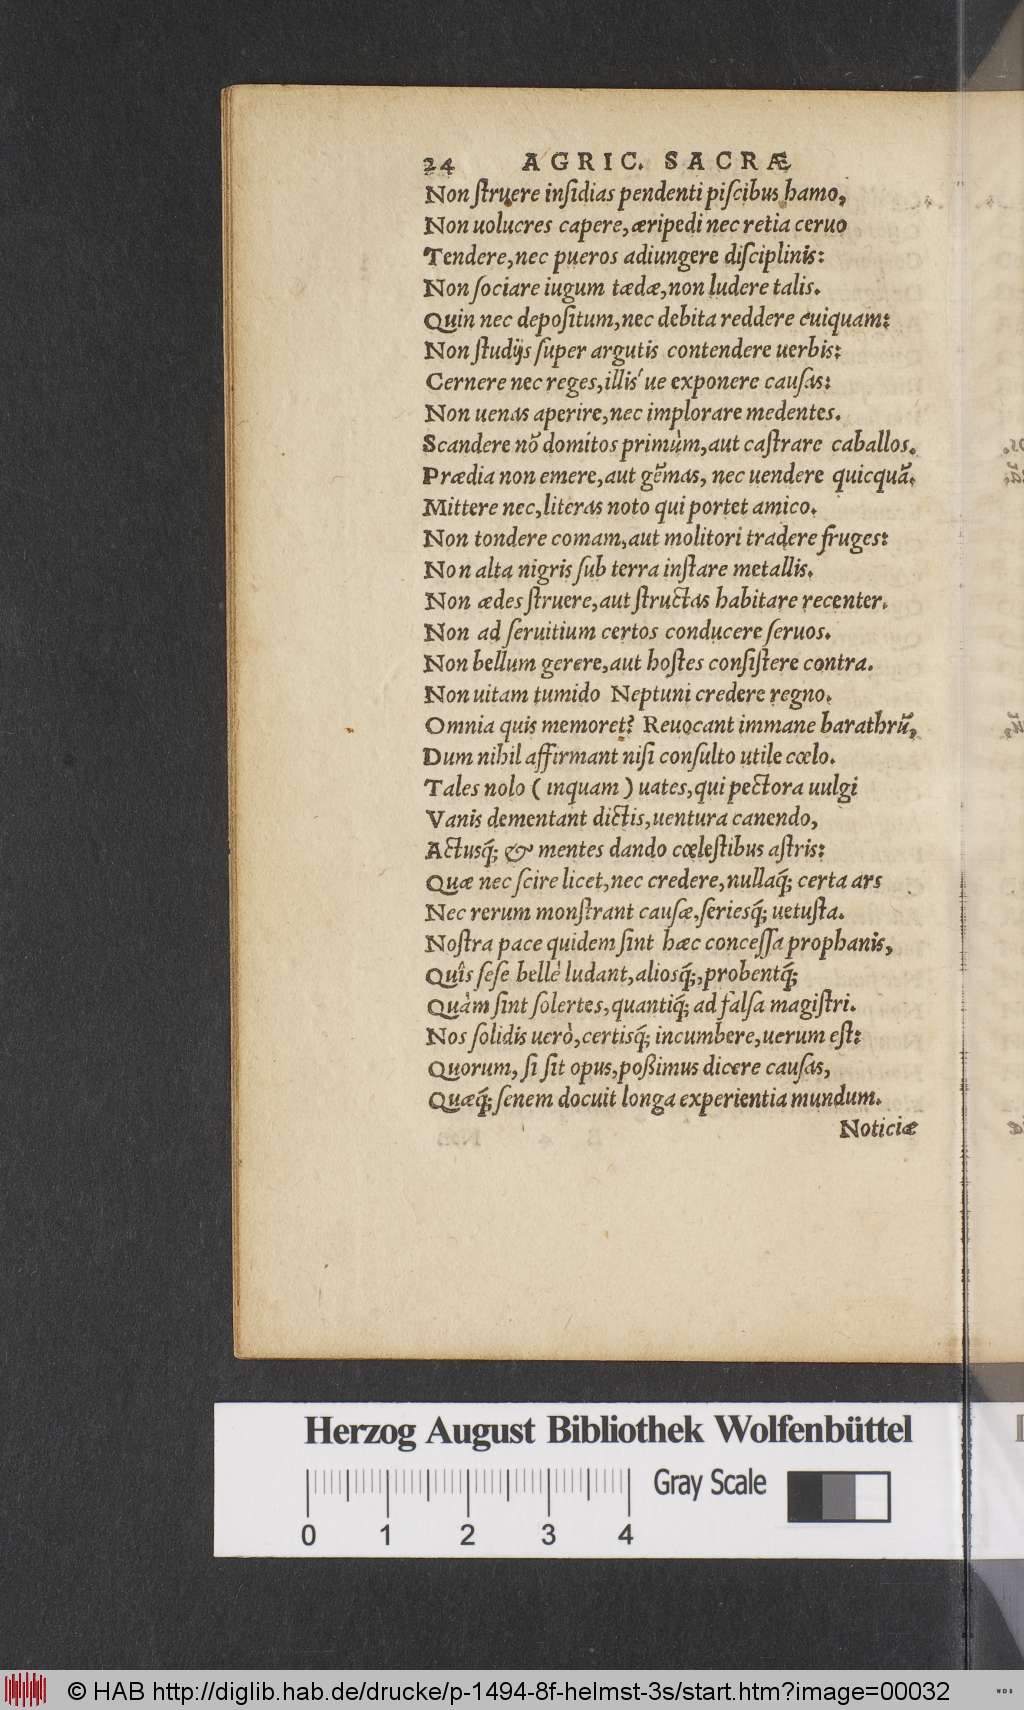 24 AGRIC. SACRÆ
Non ſtruere inſidias pendenti piſcibus hamo,
Non uolucres capere, æripedi nec retia ceruo
Tendere, nec pueros adiungere diſciplinis:
Non ſociare iugum tædæ, non ludere talis.
Quin nec depoſitum, nec debita reddere cuiquam:
Non ſtudijs ſuper argutis contendere uerbis:
Cernere nec reges, illis'ue exponere cauſas:
Non uenas aperire, nec implorare medentes.
Scandere nõ domitos primùm, aut caſtrare caballos.
Prædia non emere, aut gẽmas, nec uendere quicquã.
Mittere nec, literas noto qui portet amico.
Non tondere comam, aut molitori tradere fruges:
Non alta nigris ſub terra inſtare metallis.
Non ædes ſtruere, aut ſtructas habitare recenter.
Non ad ſeruitium certos conducere ſeruos.
Non bellum gerere, aut hoſtes conſiſtere contra.
Non uitam tumido Neptuni credere regno.
Omnia quis memoret? Reuocant immane barathrũ,
Dum nihil affirmant niſi conſulto utile cœlo.
Tales nolo ( inquam ) uates, qui pectora uulgi
Vanis dementant dictis, uentura canendo,
Actusq́; & mentes dando cœleſtibus aſtris:
Quæ nec ſcire licet, nec credere, nullaq́; certa ars
Nec rerum monſtrant cauſæ, ſeriesq́; uetuſta.
Noſtra pace quidem ſint hæc conceſſa prophanis,
Quîs ſeſe bellè ludant, aliosq́;, probentq́;
Quàm ſint ſolertes, quantiq́; ad falſa magiſtri.
Nos ſolidis uerò, certisq́; incumbere, uerum eſt:
Quorum, ſi ſit opus, poßimus dicere cauſas,
Quæq́; ſenem docuit longa experientia mundum.
Noticiæ
Herzog August Bibliothek Wolfenbüttel
Gray Scale
0 1 2 3 4
© HAB http://diglib.hab.de/drucke/p-1494-8f-helmst-3s/start.htm?image=00032